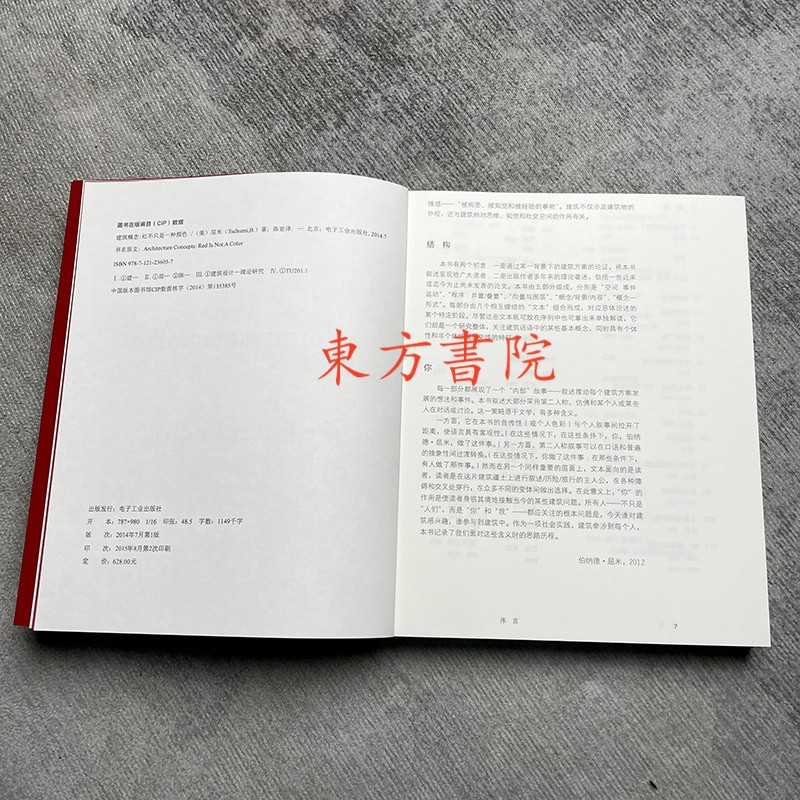 图书在版编目(CIP)数据
建筑概念:红不只是一种颜色/(美)屈米(Tschumi,B.)著;陈亚译. — 北京:电子工业出版社,2014.7
书名原文: Architecture Concepts: Red Is Not A Color
ISBN 978-7-121-23603-7
Ⅰ.①建… Ⅱ.①屈… ②陈… Ⅲ.①建筑设计—理论研究 Ⅳ.①TU201.1
中国版本图书馆CIP数据核字(2014)第135385号
出版发行:电子工业出版社
开 本:787*980 1/16 印张:48.5 字数:1149千字
版 次:2014年7月第1版
印 次:2015年8月第2次印刷
定 价:628.00元
情感——“被构思、被知觉和被经验的事物”。建筑不仅涉及建筑物的
外观,还与建筑物对思维、知觉和社交空间的作用有关。
结 构
本书有两个初衷:一是通过某一背景下的建筑方案的论证,将本书
叙述呈现给广大读者;二是出版作者多年来的理论著述,包括一些近来
或迄今为止尚未发表的论文。本书由五部分组成,分别是“空间 事件
运动”、“程序:并置/叠置”、“向量与围层”、“概念/背景/内容”、“概念—
形式”。每部分由几个相互缠绕的“文本”组合而成,对应总体论述的
某个特定阶段。尽管这些文本既可放在序列中也可拿出来单独解读,它
们却是一个研究整体,关注建筑话语中的某些基本概念,同时具有个体
性和非个体
的特
東方書院
你
每一部分都展现了一个“内部”故事——叙述推动每个建筑方案发
展的想法和事件。本书叙述大部分采用第二人称,仿佛和某个人或某些
人在对话或讨论。这一策略源于文学,有多种含义。
一方面,它在本书的自传性(或个人色彩)与个人叙事间拉开了
距离,使语言具有客观性。(在这些情况下,在这些条件下,你,伯纳
德·屈米,做了这件事。)另一方面,第二人称叙事可以在口语和普遍
的抽象性间过渡转换。(在这些情况下,你做了这件事;在那些条件下,
有人做了那件事。)然而在另一个同样重要的层面上,文本面向的是读
者,读者是在这片建筑疆土上进行叙述/历险/旅行的主人公,在各种障
碍和交叉处穿行,在众多不同的变体间做出选择。在此意义上,“你”的
作用是使读者身临其境地接触当今的某些建筑问题。所有人——不只是
“人们”,而是“你”和“我”——都应关注的根本问题是,今天谁对建
筑感兴趣,谁参与到建筑中。作为一项社会实践,建筑牵涉到每个人,
本书记录了我们面对这些含义时的思路历程。
伯纳德·屈米,2012
序 言
7